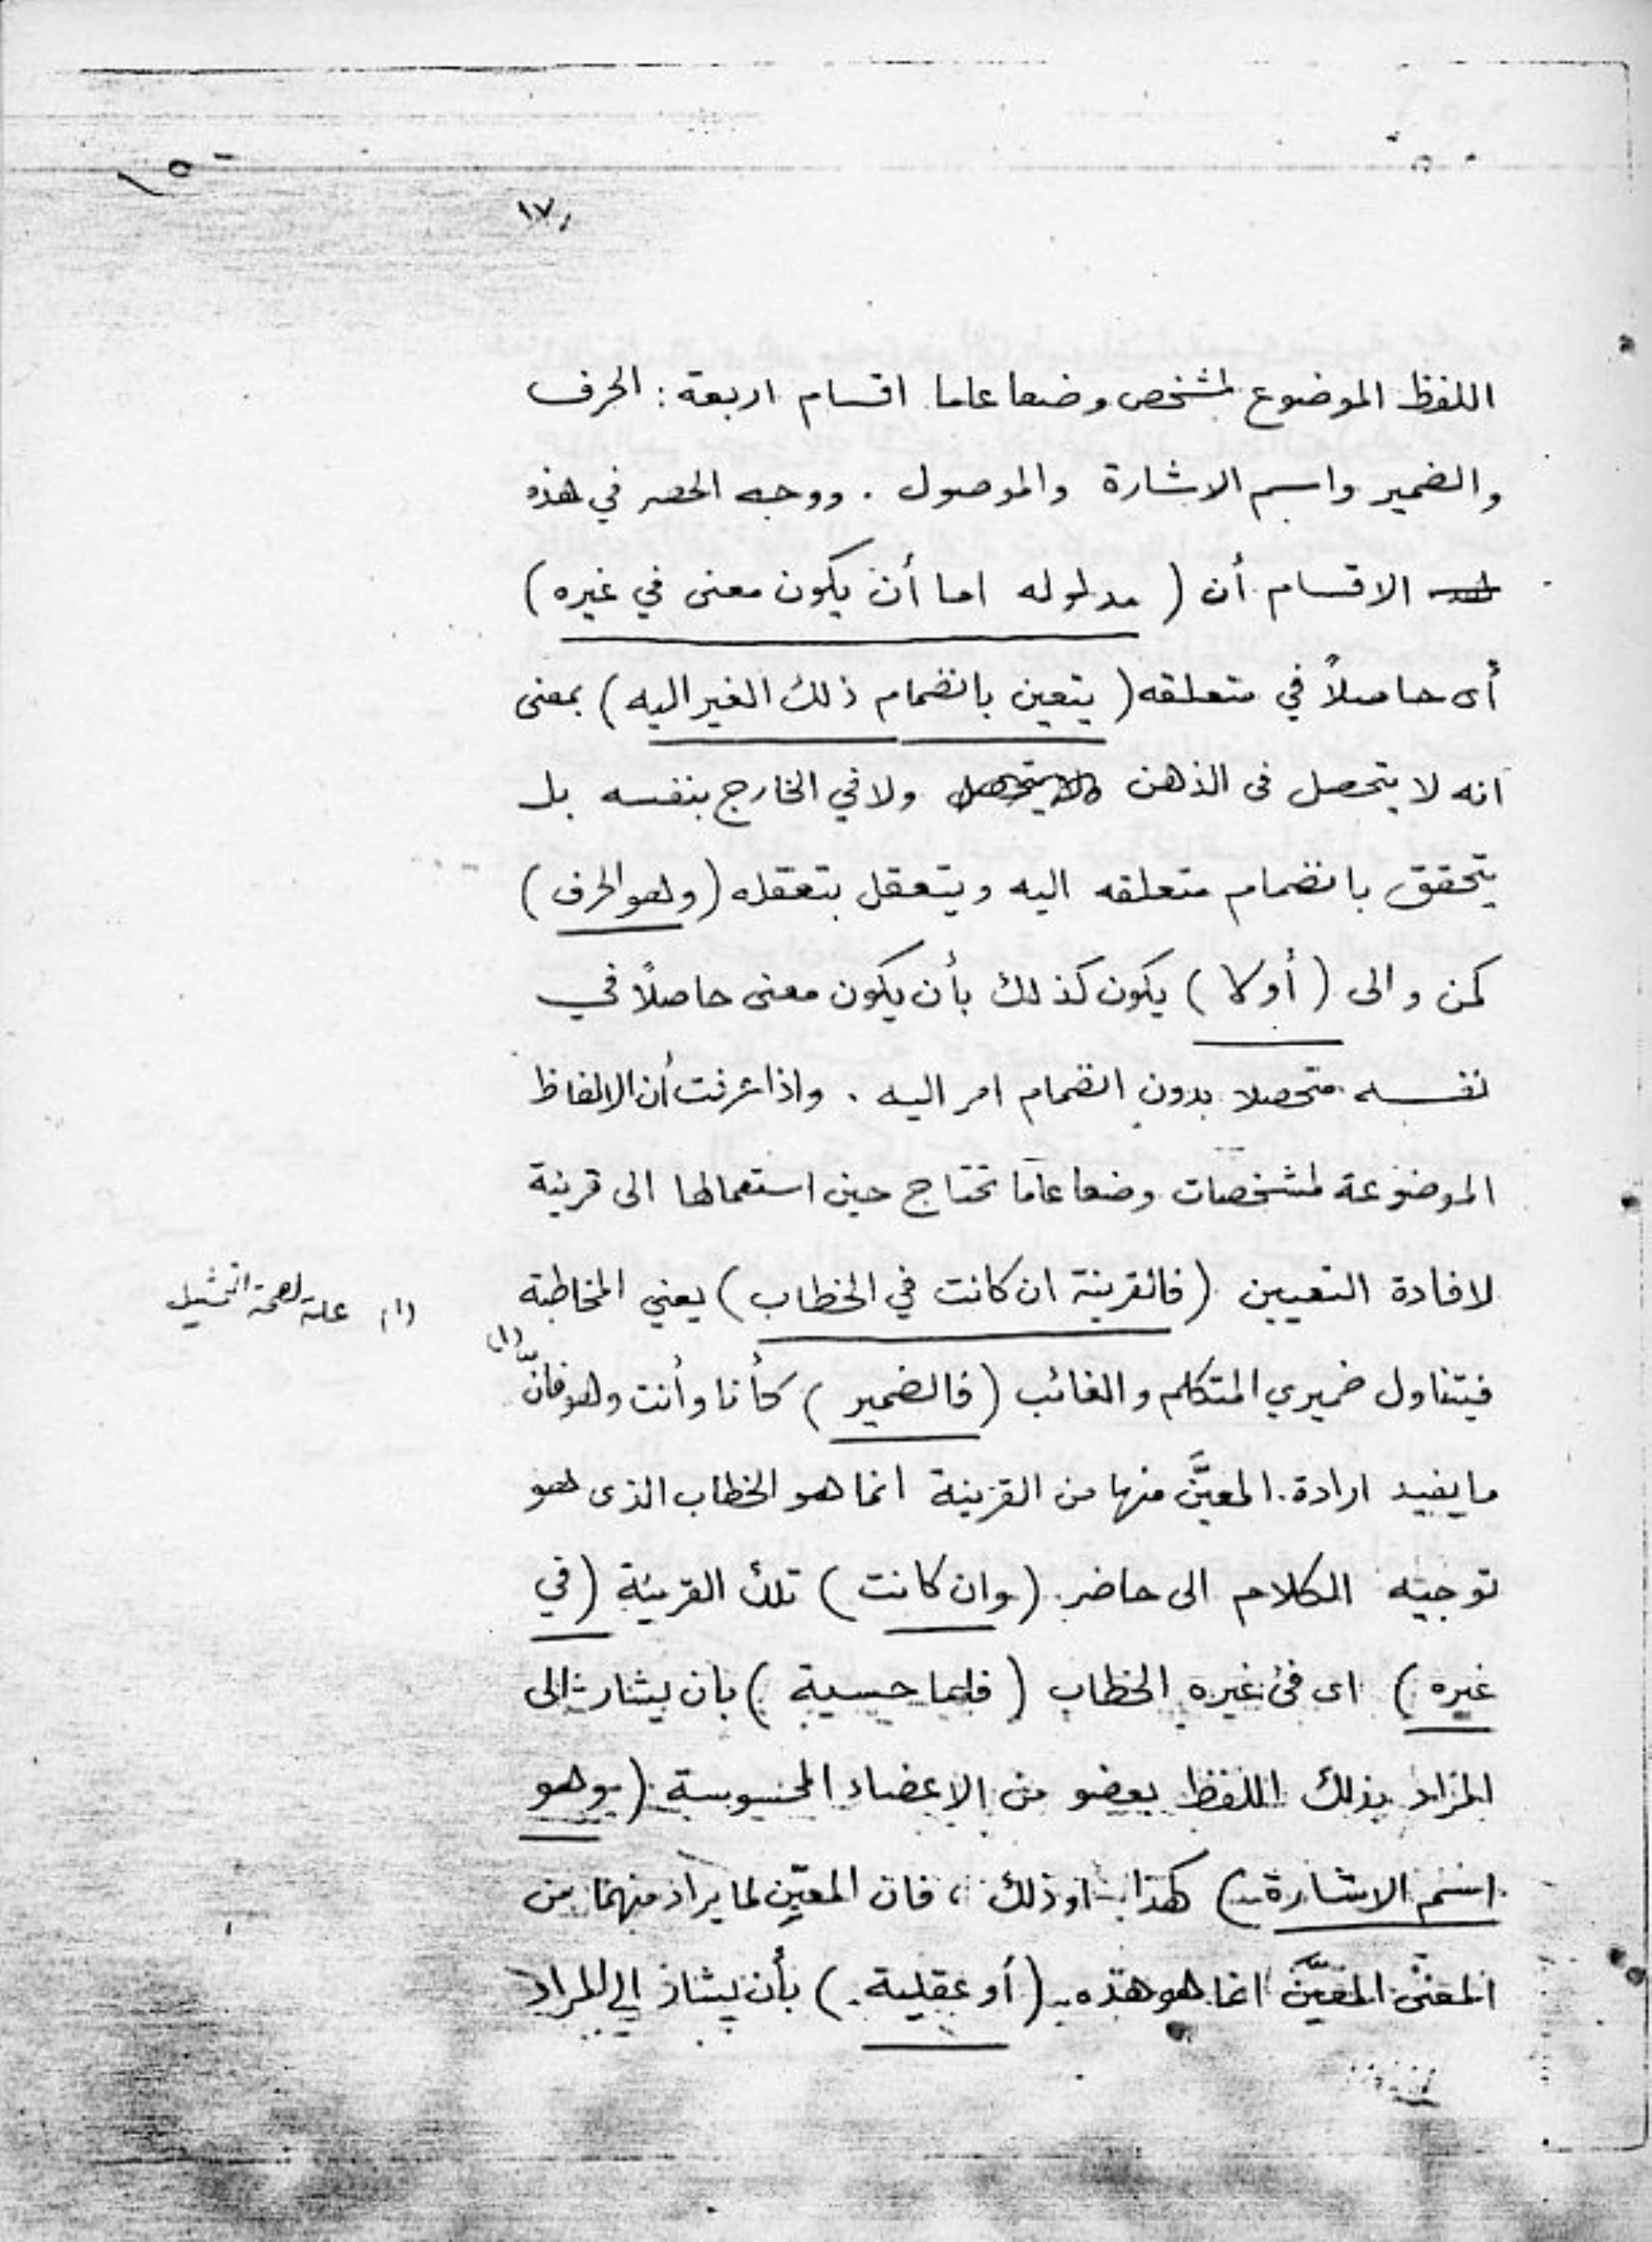 ١٥
١٧
اللفظ الموضوع لمشخص وضعا عاما اقسام اربعة : الحرف
والضمير واسم الاشارة والموصول . ووجه الحصر في هذه
الاقسام أن ( مدلوله اما أن يكون معنى في غيره )
أى حاصلاً في متعلقه ( يتعين بانضمام ذلك الغير اليه ) بمعنى
انه لا يتحصل فى الذهن ولا في الخارج بنفسه بل
يتحقق بانضمام متعلقه اليه ويتعقل بتعقله ( وهو الحرف )
كمن والى ( أو لا ) يكون كذلك بأن يكون معنى حاصلاً في
نفسه متحصلا بدون انضمام امر اليه . واذا عرفت أن الالفاظ
الموضوعة لمشخصات وضعا عاما تحتاج حين استعمالها الى قرينة
لافادة التعيين ( فالقرينة ان كانت في الخطاب ) يعني المخاطبة
(١) علة لصحة التمثيل
فيتناول ضميري المتكلم والغائب ( فالضمير ) كأنا وأنت وهو فانّ (١)
ما يفيد ارادة المعيَّن منها من القرينة انما هو الخطاب الذى هو
توجيه الكلام الى حاضر ( وان كانت ) تلك القرينة ( في
غيره ) اى فى غيره الخطاب ( فاما حسية ) بان يشار الى
المراد بذلك اللفظ بعضو من الاعضاء المحسوسة ( وهو
اسم الاشارة ) كهذا او ذلك ، فان المعيّن لما يراد منهما من
المعنى المعيَّن انما هو هذه ( أو عقلية ) بأن يشار الى المراد